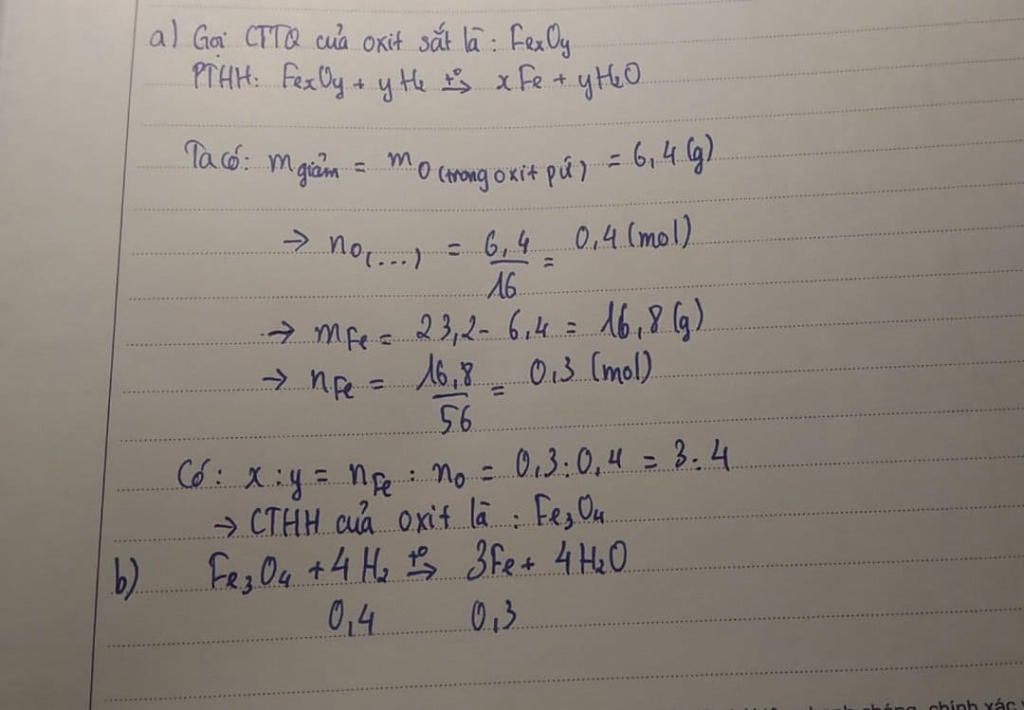 a) Gọi CTTQ của oxit sắt là: FexOy
PTHH: FexOy + yH2 t°→ xFe + yH2O
Ta có: mgiảm = mO (trong oxit pứ) = 6,4 (g)
→ nO(...) = 6,4/16 = 0,4 (mol)
→ mFe = 23,2 - 6,4 = 16,8 (g)
→ nFe = 16,8/56 = 0,3 (mol)
Có: x:y = nFe : nO = 0,3:0,4 = 3:4
→ CTHH của oxit là: Fe3O4
b) Fe3O4 + 4H2 t°→ 3Fe + 4H2O
0,4 0,3
chóng, chính xác